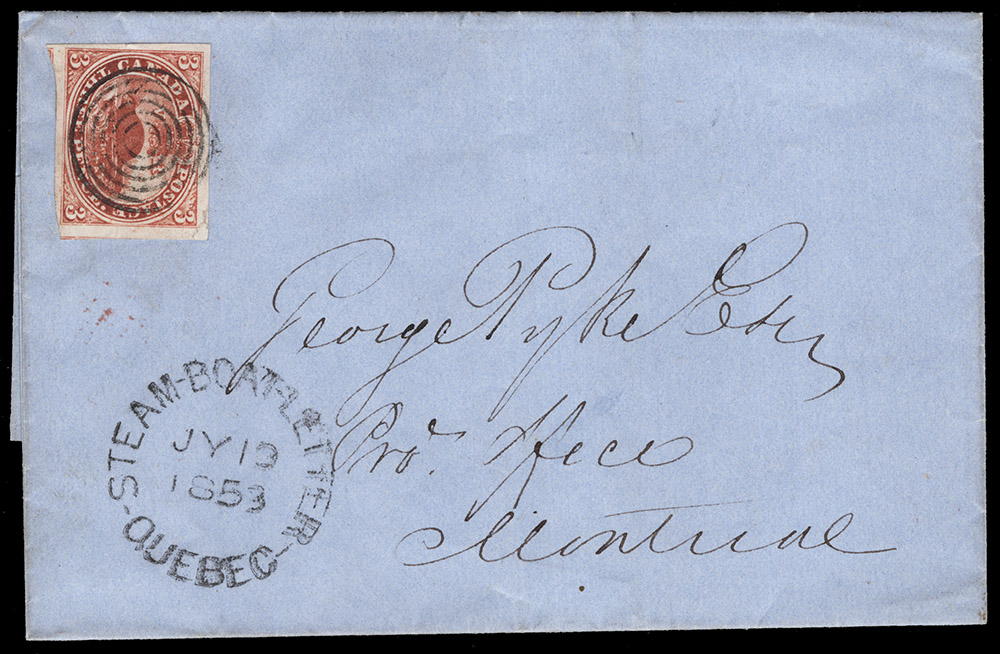 3 3
CANADA POSTAGE
3 3
George Pyke Esqr
Pro. Office
Montreal
STEAM-BOAT-LETTER
JY 19
1853
QUEBEC